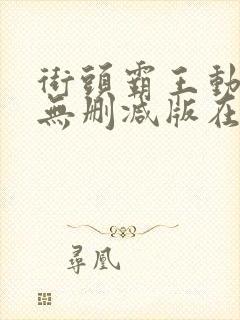 街頭霸王動
無刪減版在
尋凰